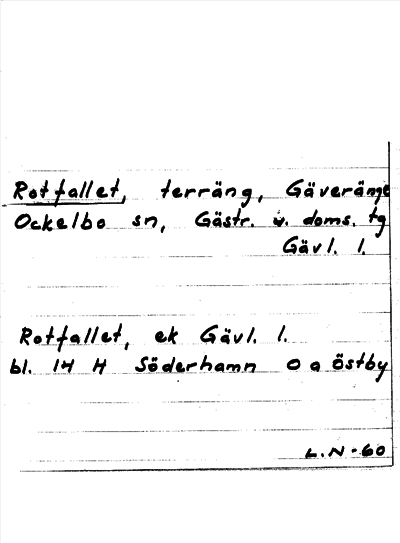 Rotfallet, terräng, Gäveränge
Ockelbo sn, Gästr. v. doms. tg
Gävl. l.
Rotfallet, ek Gävl. l.
bl. 14 H Söderhamn O a Östby
L.N-60